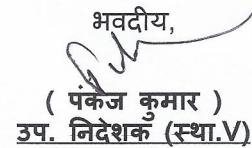 भवदीय,
( पंकज कुमार )
उप. निदेशक (स्था.V)